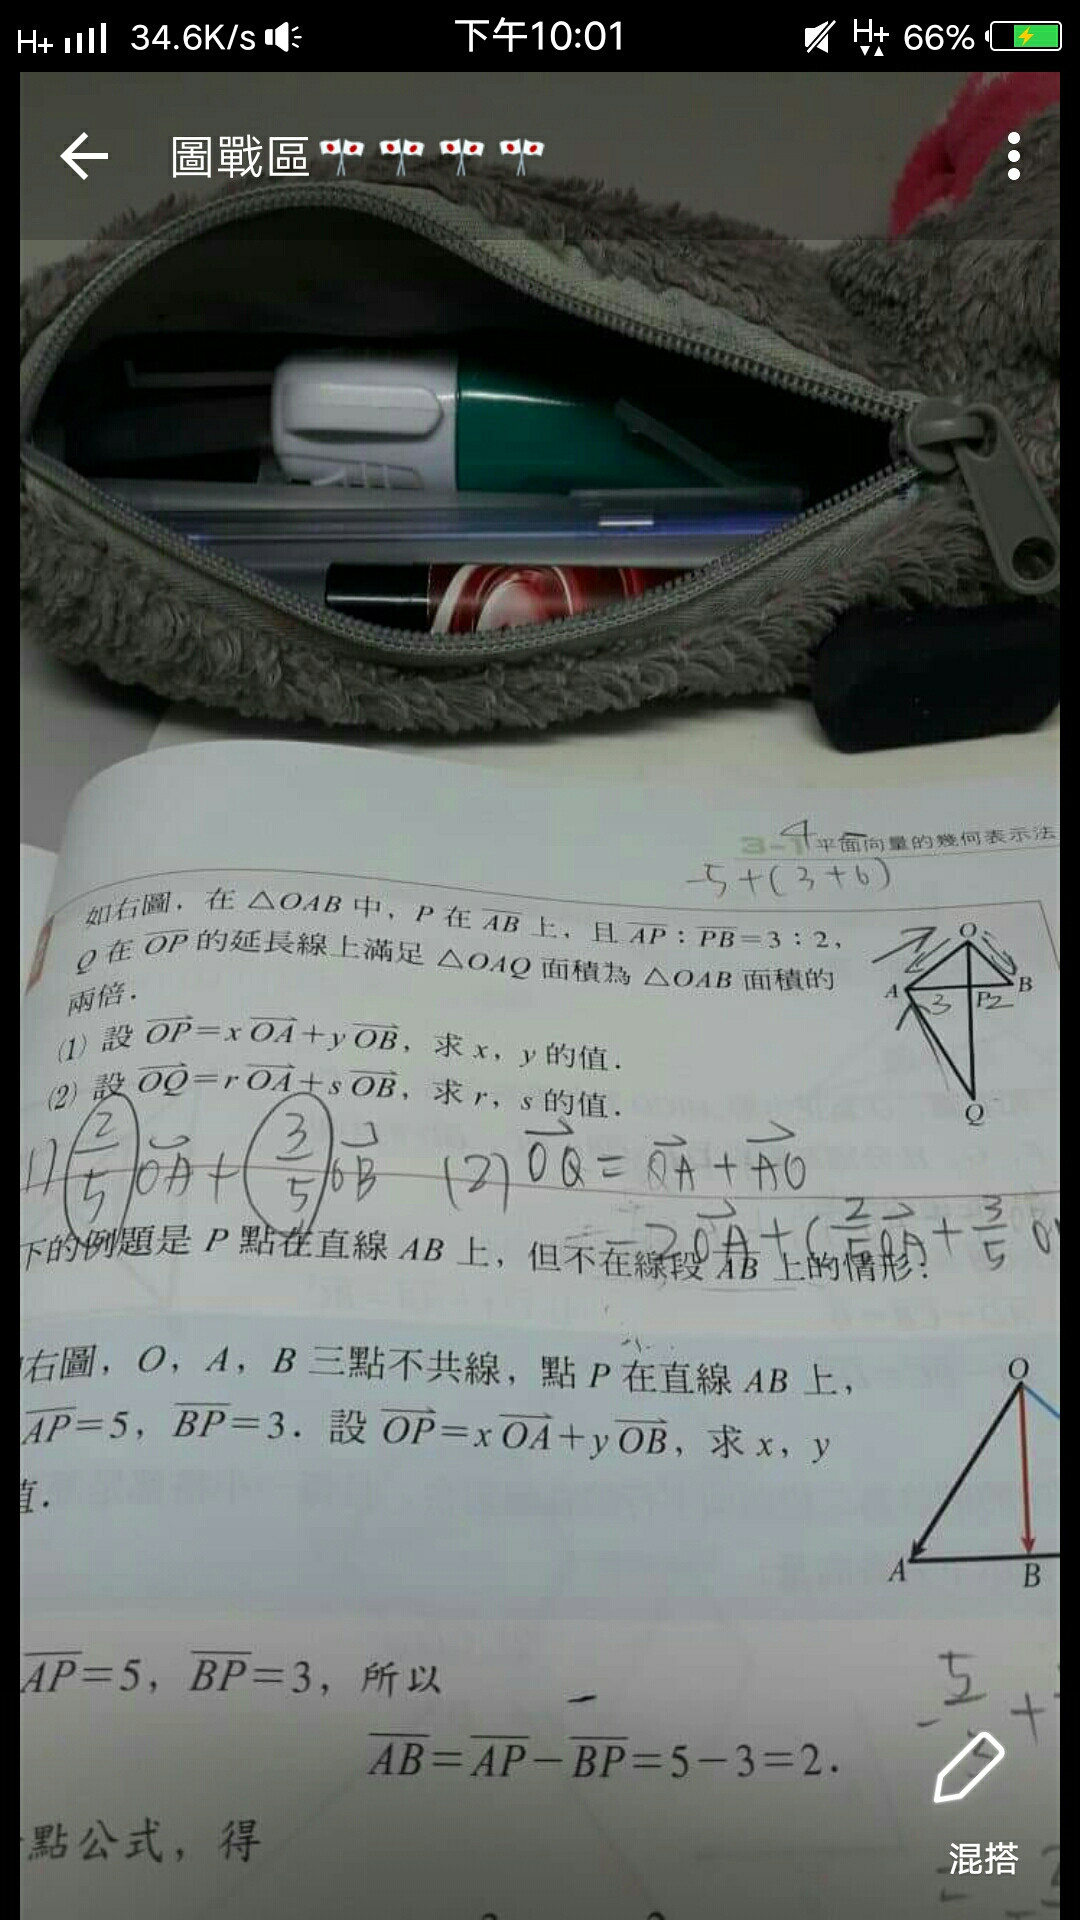 34.6K/s 下午10:01 H+ 66%
圖戰區
平面向量的幾何表示法
-5+(3+6)
如右圖，在 △OAB 中，P 在 AB 上，且 AP：PB=3：2，
Q 在 OP 的延長線上滿足 △OAQ 面積為 △OAB 面積的
兩倍．
(1) 設 OP=xOA+yOB，求 x，y 的值．
(2) 設 OQ=rOA+sOB，求 r，s 的值．
O
A 3 P 2 B
Q
2/5 OA + 3/5 OB (2) OQ = QA + AO
= 2OA + (2/5 OA + 3/5 O
下的例題是 P 點在直線 AB 上，但不在線段 AB 上的情形：
右圖，O，A，B 三點不共線，點 P 在直線 AB 上，
AP=5，BP=3．設 OP=xOA+yOB，求 x，y
值．
O
A B
AP=5，BP=3，所以
AB=AP−BP=5−3=2．
點公式，得
混搭